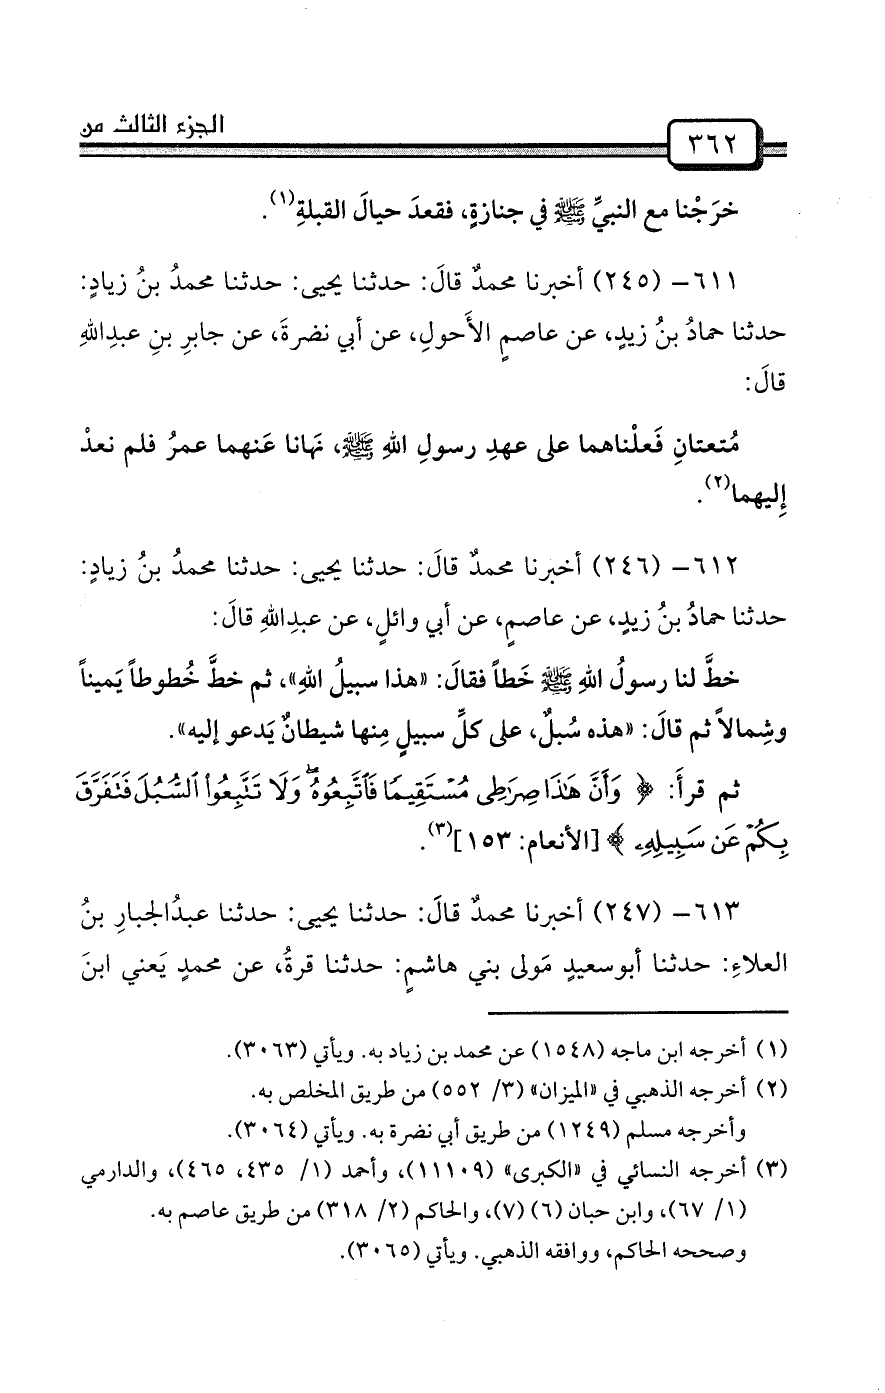 الجزء الثالث من
٣٦٢
خرَجْنا مع النبيِّ ﷺ في جنازةٍ، فقعدَ حيالَ القبلةِ(١).
٦١١- (٢٤٥) أخبرنا محمدٌ قالَ: حدثنا يحيى: حدثنا محمدُ بنُ زيادٍ:
حدثنا حمادُ بنُ زيدٍ، عن عاصمٍ الأَحولِ، عن أبي نضرةَ، عن جابرِ بنِ عبدِاللهِ
قالَ:
مُتعتانِ فَعلْناهما على عهدِ رسولِ اللهِ ﷺ، نَهانا عَنهما عمرُ فلم نعدْ
إِليهما(٢).
٦١٢- (٢٤٦) أخبرنا محمدٌ قالَ: حدثنا يحيى: حدثنا محمدُ بنُ زيادٍ:
حدثنا حمادُ بنُ زيدٍ، عن عاصمٍ، عن أبي وائلٍ، عن عبدِاللهِ قالَ:
خطَّ لنا رسولُ اللهِ ﷺ خَطاً فقالَ: «هذا سبيلُ اللهِ»، ثم خطَّ خُطوطاً يَميناً
وشِمالاً ثم قالَ: «هذه سُبلٌ، على كلِّ سبيلٍ مِنها شيطانٌ يَدعو إليه».
ثم قرأَ: ﴿ وَأَنَّ هَٰذَا صِرَٰطِى مُسْتَقِيمًا فَٱتَّبِعُوهُ ۖ وَلَا تَتَّبِعُوا۟ ٱلسُّبُلَ فَتَفَرَّقَ
بِكُمْ عَن سَبِيلِهِۦ ﴾ [الأنعام: ١٥٣](٣).
٦١٣- (٢٤٧) أخبرنا محمدٌ قالَ: حدثنا يحيى: حدثنا عبدُالجبارِ بنُ
العلاءِ: حدثنا أبوسعيدٍ مَولى بني هاشمٍ: حدثنا قرةُ، عن محمدٍ يَعني ابنَ
(١) أخرجه ابن ماجه (١٥٤٨) عن محمد بن زياد به. ويأتي (٣٠٦٣).
(٢) أخرجه الذهبي في «الميزان» (٣/ ٥٥٢) من طريق المخلص به.
وأخرجه مسلم (١٢٤٩) من طريق أبي نضرة به. ويأتي (٣٠٦٤).
(٣) أخرجه النسائي في «الكبرى» (١١١٠٩)، وأحمد (١/ ٤٣٥، ٤٦٥)، والدارمي
(١/ ٦٧)، وابن حبان (٦) (٧)، والحاكم (٢/ ٣١٨) من طريق عاصم به.
وصححه الحاكم، ووافقه الذهبي. ويأتي (٣٠٦٥).